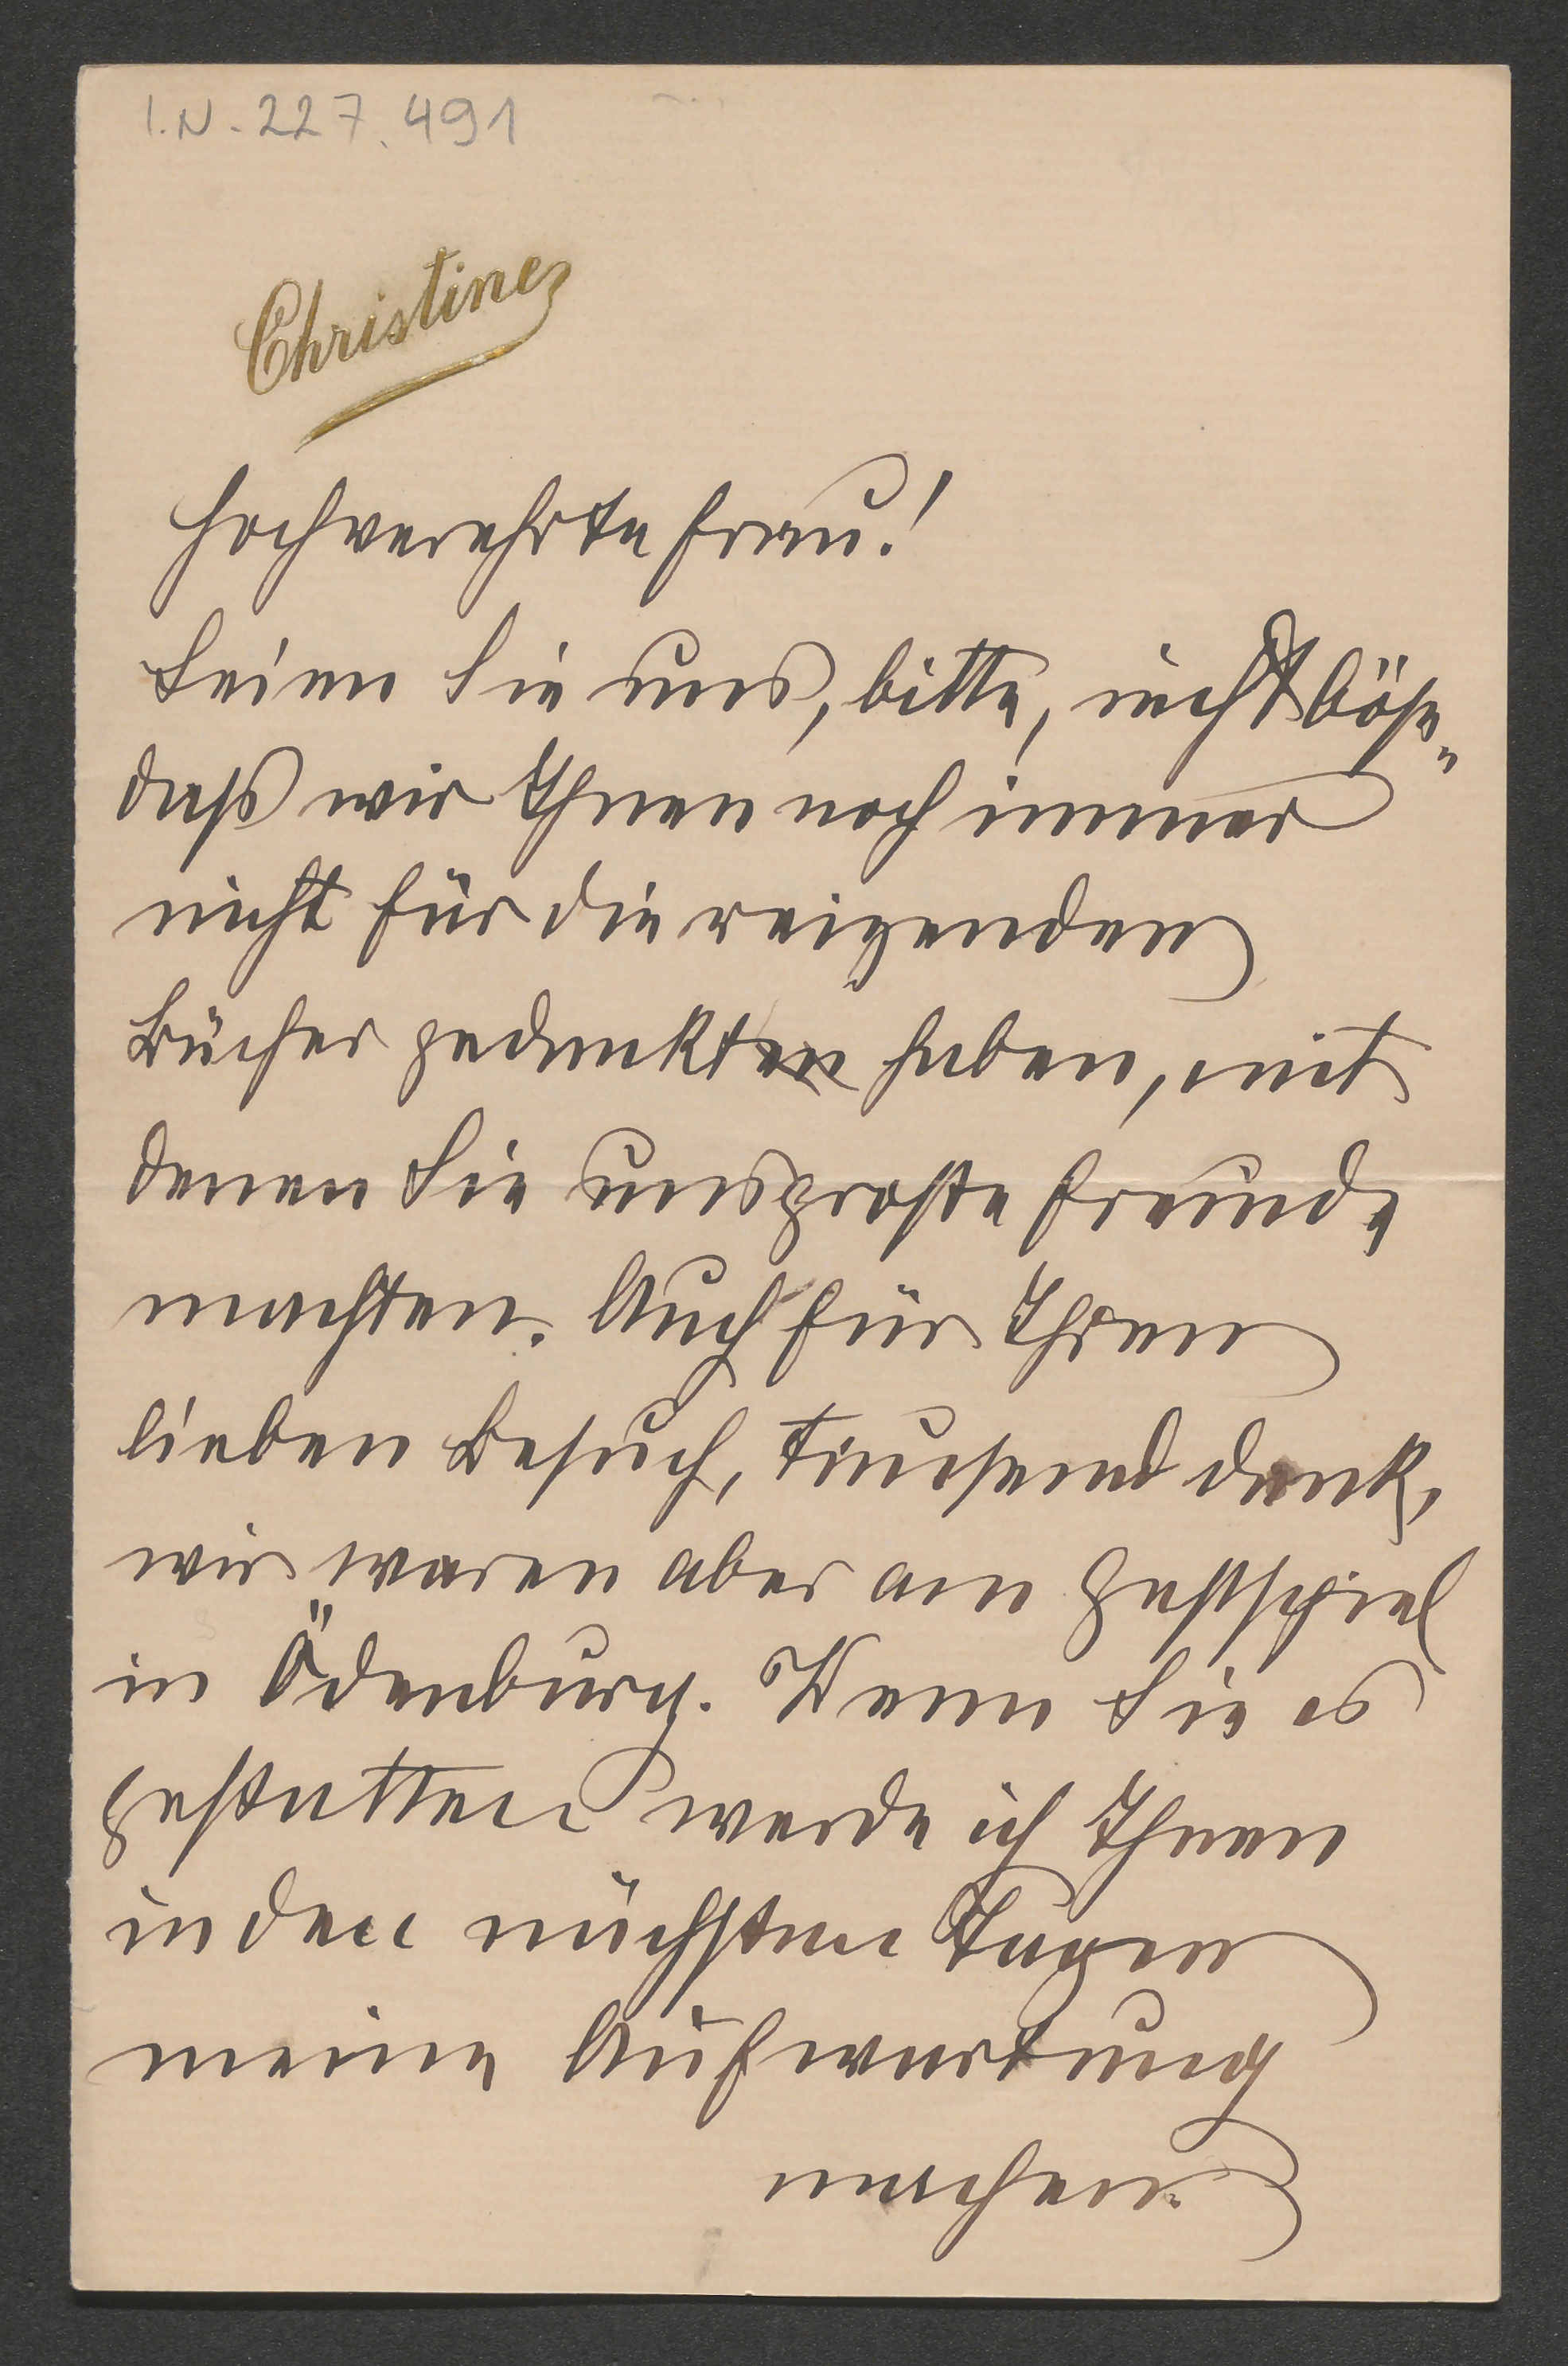 I.N. 227.491
Christine
Hochverehrte Frau!
Seien Sie uns, bitte, nicht böse,
daß wir Ihnen noch immer
nicht für die reizenden
Bücher gedankt haben, mit
denen Sie uns große Freude
machten. Auch für Ihren
lieben Besuch, tausend Dank,
wir waren aber am Gastspiel
in Ödenburg. Wenn Sie es
gestatten werde ich Ihnen
in den nächsten Tagen
meine Aufwartung
machen.